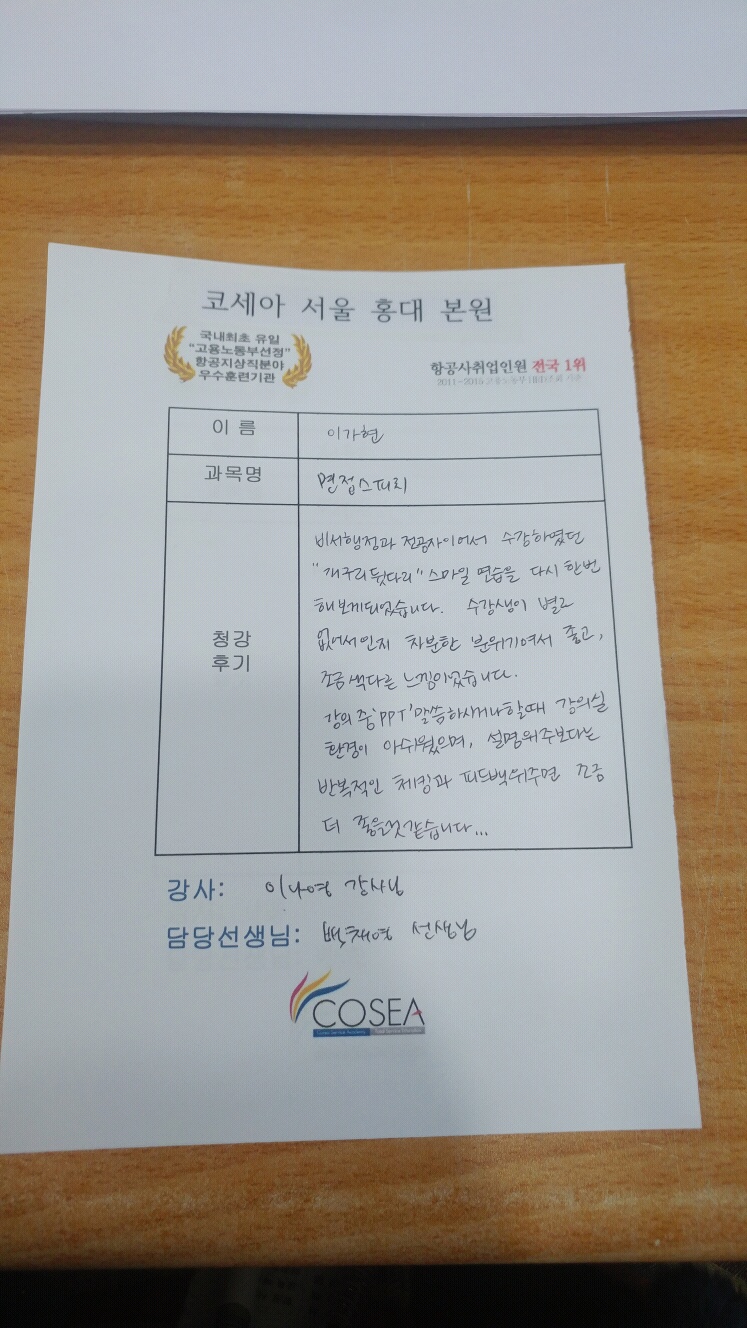 코세아 서울 홍대 본원
국내최초 유일
"고용노동부선정"
항공지상직분야
우수훈련기관
항공사취업인원 전국 1위
2011~2015 고용노동부
이 름
이가현
과목명
면접스피치
청강
후기
비서행정과 전공자이어서 수강하였던
"개구리 뒷다리" 스마일 연습을 다시 한번
해보게되었습니다. 수강생이 별로
없어서인지 차분한 분위기여서 좋고,
조금 색다른 느낌이었습니다.
강의 중 'PPT' 말씀하시거나할때 강의실
환경이 아쉬웠으며, 설명위주보다는
반복적인 체킹과 피드백위주면 조금
더 좋을것같습니다...
강사: 이나영 강사님
담당선생님: 백채영 선생님
COSEA